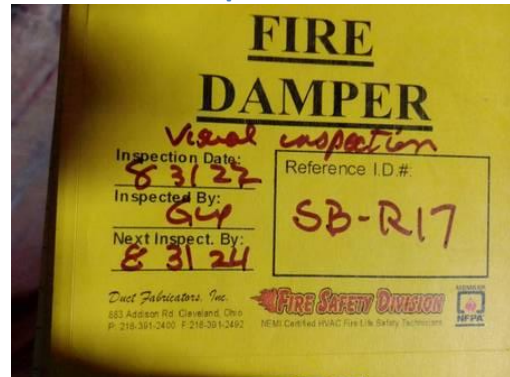 FIRE
DAMPER
Visual inspection
Inspection Date:
8 31 22
Inspected By:
Next Inspect. By:
8 31 24
Reference I.D.#:
SB-R17
Duct Fabricators, Inc.
883 Addison Rd. Cleveland, Ohio
P: 216-391-2400 F: 216-391-2492
FIRE SAFETY DIVISION
NEMI Certified HVAC Fire Life Safety Technicians
MEMBER
NFPA